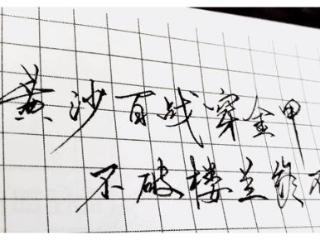 黄沙百战穿金甲
不破楼兰终不